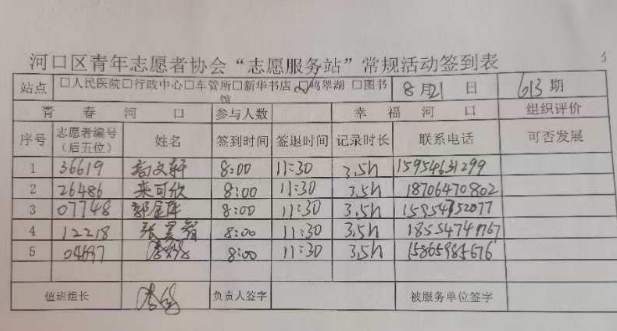 河口区青年志愿者协会“志愿服务站”常规活动签到表
站点 □人民医院□行政中心□车管所□新华书店☑鸣翠湖 □图书馆 8月21日 613期
青春河口 参与人数 幸福河口 组织评价
序号 志愿者编号（后五位） 姓名 签到时间 签退时间 记录时长 联系电话 可否发展
1 36619 高文轩 8:00 11:30 3.5h 15954631299
2 26486 来可欣 8:00 11:30 3.5h 18706470802
3 07748 8:00 11:30 3.5h
4 12218 8:00 11:30 3.5h
5 8:00 11:30 3.5h 15865985676
值班组长 负责人签字 被服务单位签字